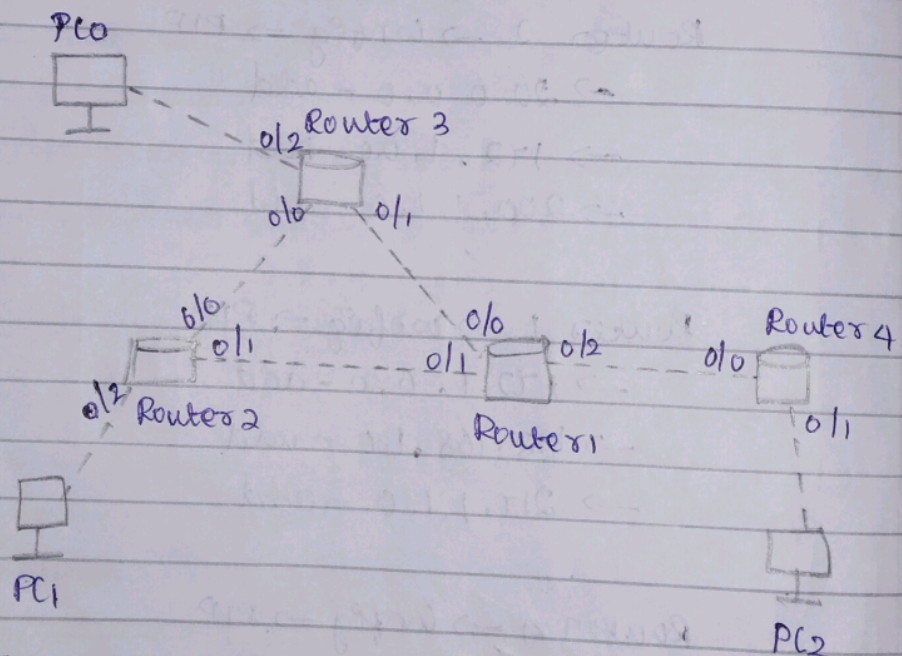 PC0
Router 3
0/2
0/0
0/1
0/0
0/1
0/2
Router 2
0/0
0/1
0/2
Router 1
Router 4
0/0
0/1
PC1
PC2